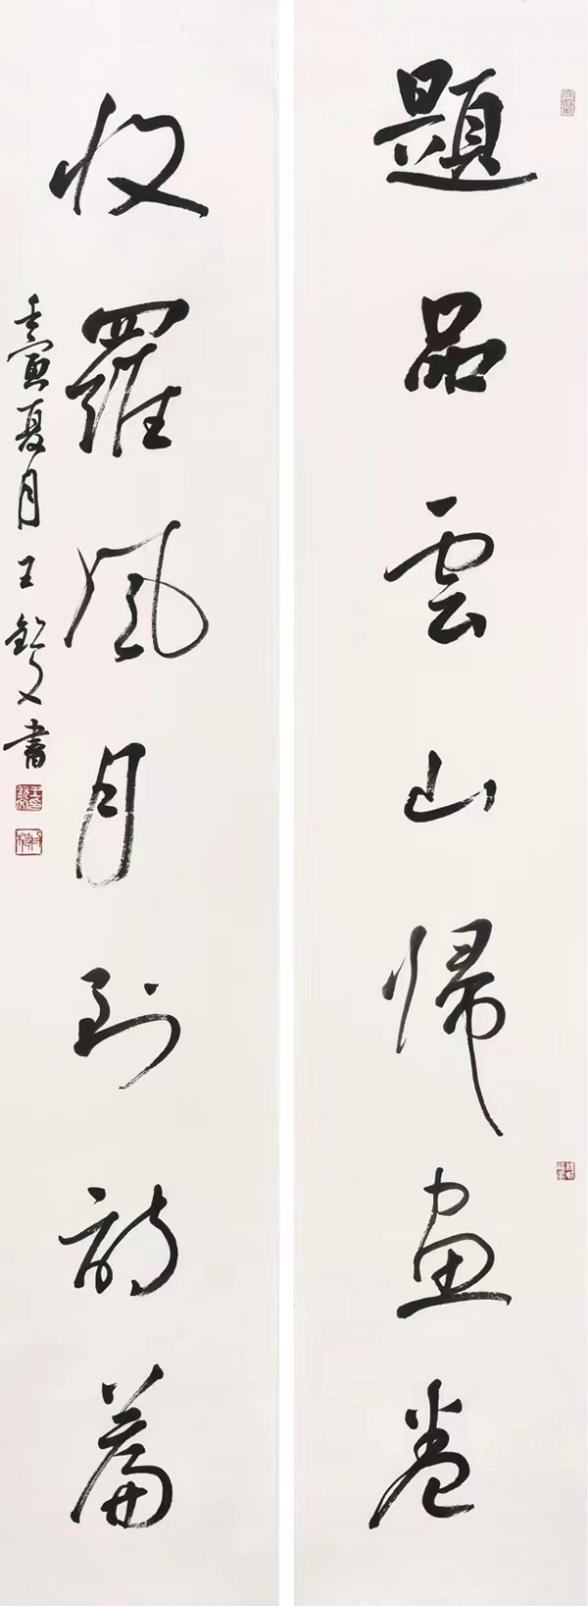 題品雲山歸畫卷
收羅風月到詩篇
壬寅夏月王鈐文書